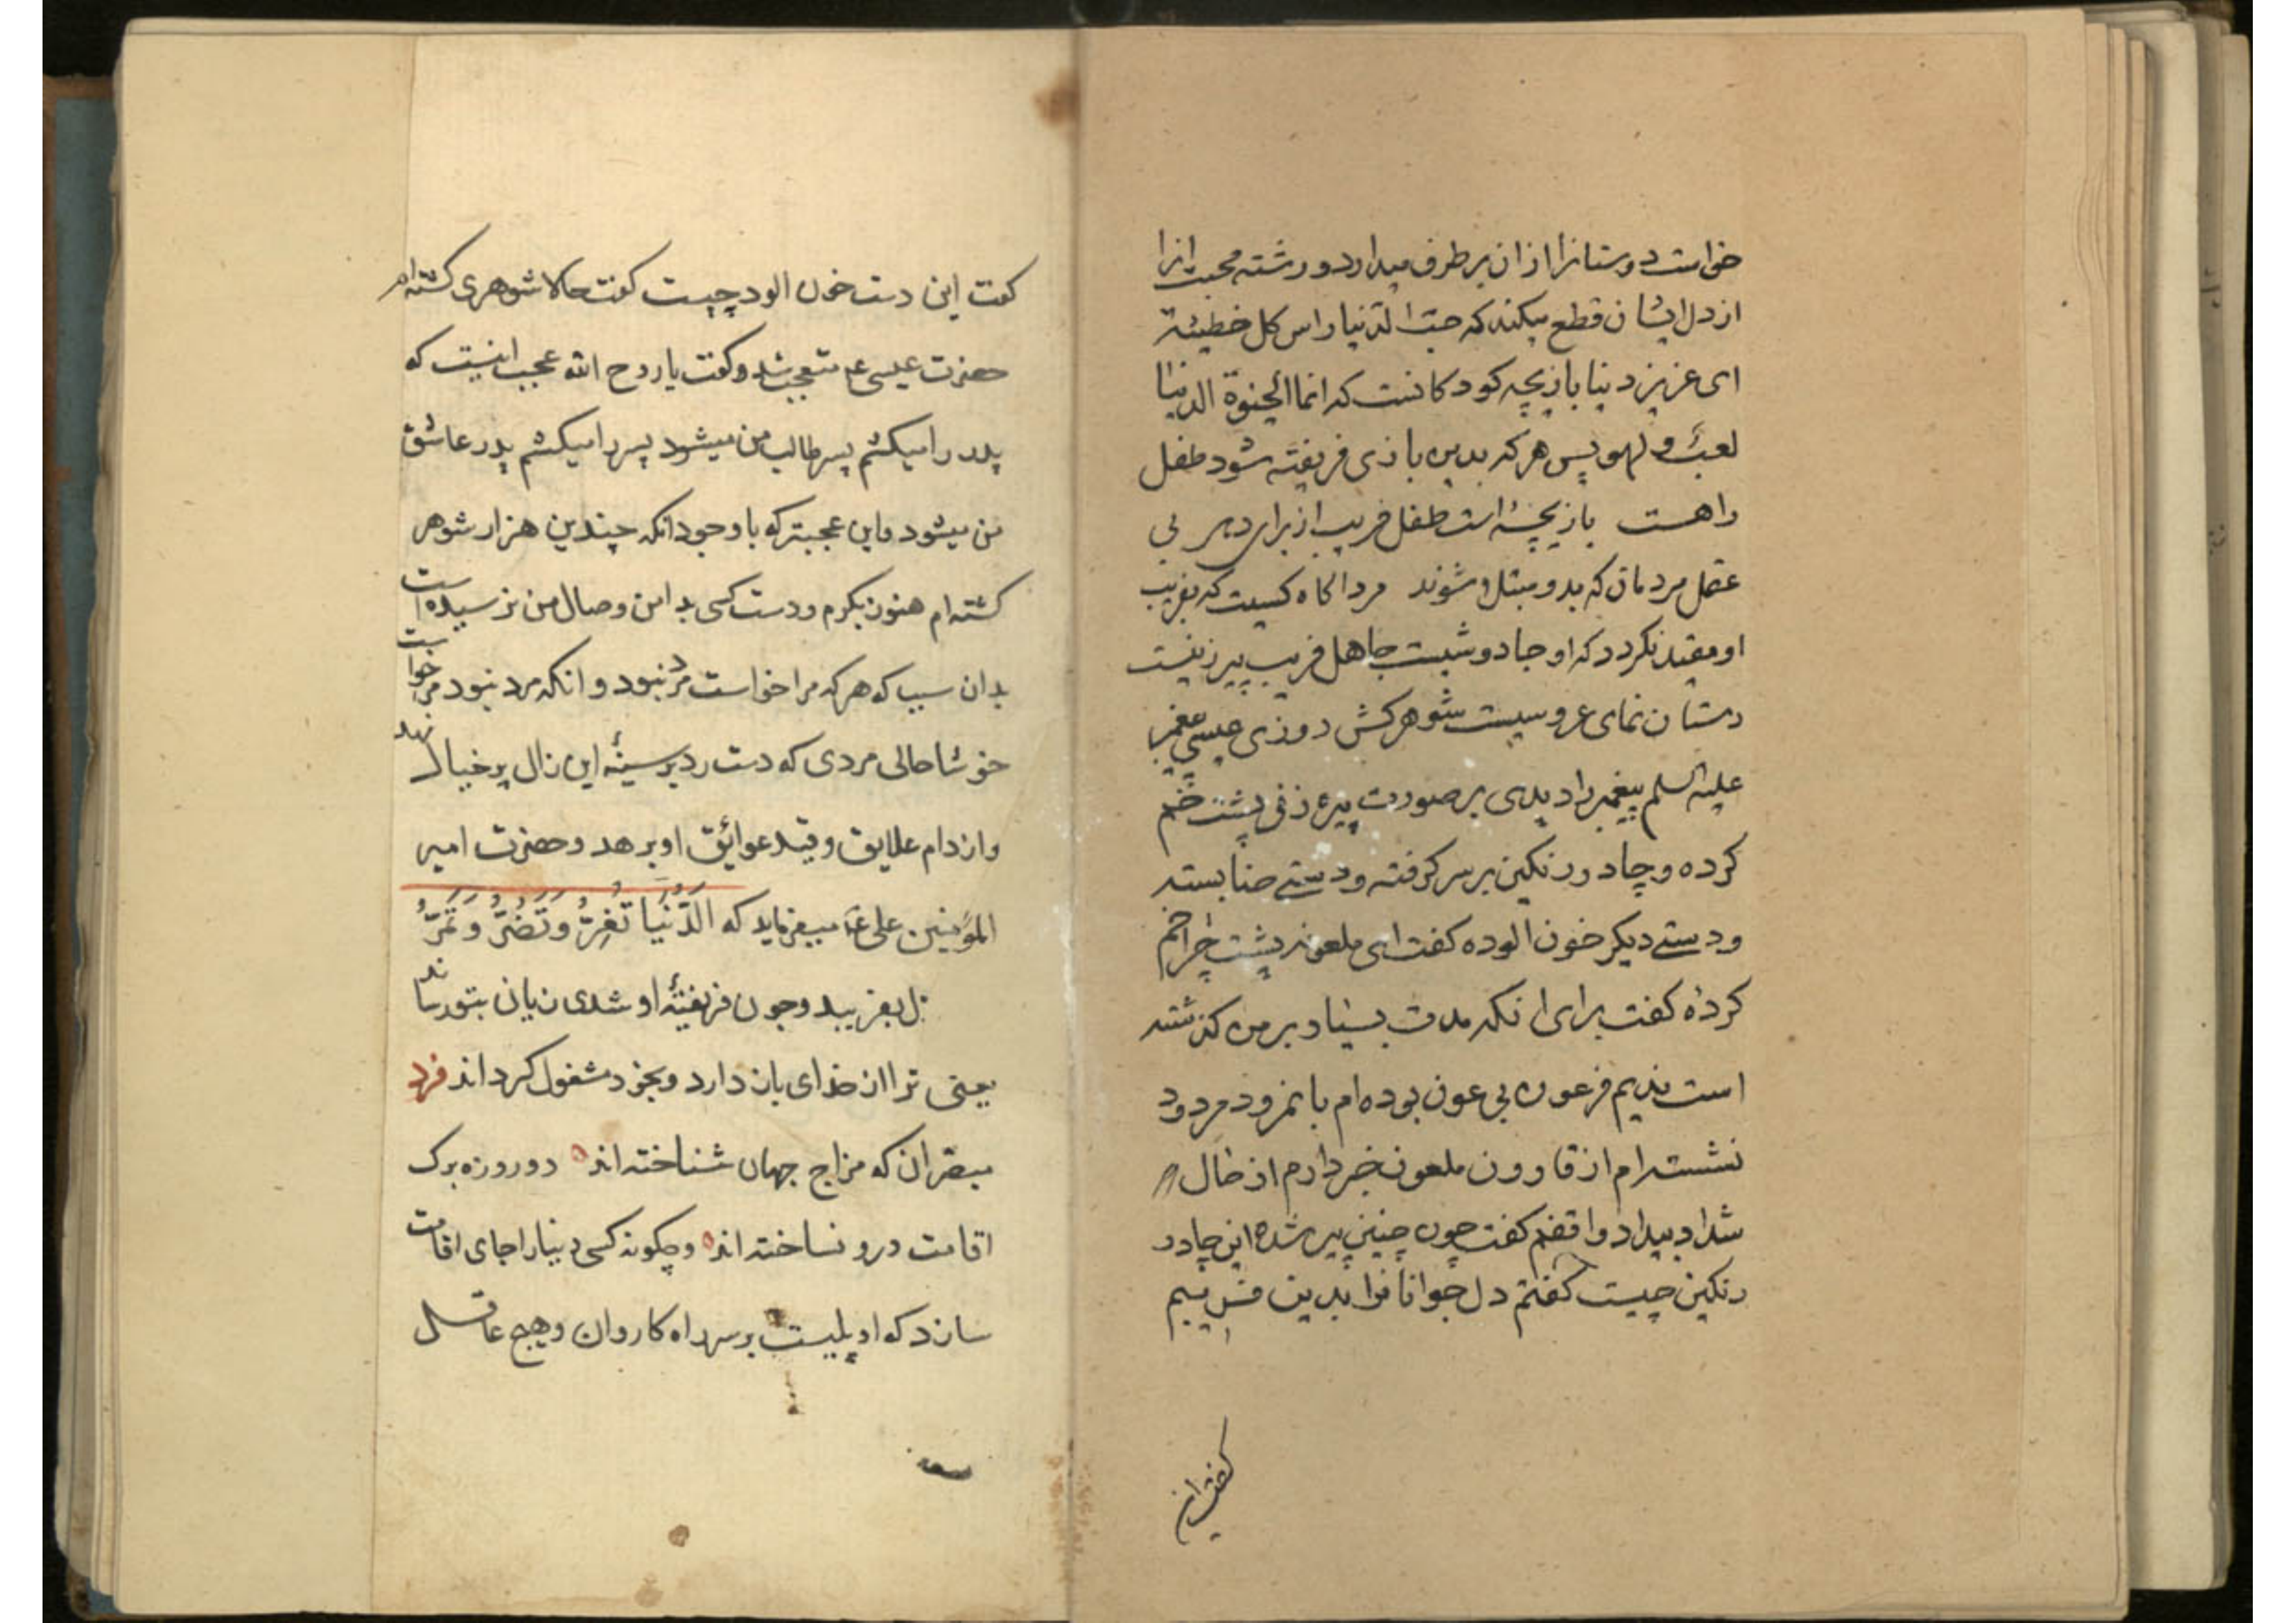 خواست دوستانرا ازان برطرف میدارد و رشته محبت انرا
از دل ایشان قطع میکند که حبّ الدّنیا راس کل خطیئة
ای عزیز دنیا بازیچه کودکانست که انما الحیوة الدنیا
لعب و لهو پس هر که بدین بازی فریفته شود طفل
راهست بازیچهٔ است طفل فریب از برای دهر بی
عقل مردمان که بدو مبتلا شوند مرد اکاه کسیت که بفریب
او مقید نکردد که او جادوئیست جاهل فریب پیرزنیست
دستان نمای عروسیست شوهر کش روزی عیسی پیغمبر
علیه السلم پیغمبر را دیدی بر صورت پیره زنی پشت خم
کرده و چادر رنکین بر سر کرفته و دستے حنا بسته
و دستے دیکر خون الوده کفت ای ملعونه پشت چرا خم
کردهٔ کفت برای انکه مدت بسیار بر من کذشته
است ندیم فرعون بی عون بوده ام با نمرود مردود
نشسته ام از قارون ملعون خبر دارم از حال
شداد بیداد واقفم کفت چون چنین پیر شدهٔ این چادر
رنکین چیست کفتم دل جوانانرا بدین فریبم
کفت این
کفت این دست خون الود چیست کفت حالا شوهری کشته‌ام
حضرت عیسی ع متعجب شد و کفت یا روح الله عجب اینست که
پدر را میکشم پسر طالب من میشود پسر را میکشم پدر عاشق
من میشود و این عجبتر که با وجود انکه چندین هزار شوهر
کشته ام هنوز بکرم و دست کسی بدامن وصال من نرسیده است
بدان سبب که هر که مرا خواست مرد نبود و انکه مرد نبود مرا خواست
خوشا حالی مردی که دست رد بر سینهٔ این زال پر خیال نهد
و از دام علایق و قید عوائق او برهد و حضرت امیر
المؤمنین علی ع میفرماید که الدُّنْیَا تَغُرُّ وَ تَضُرُّ وَ تَمُرُّ
بفریبد و چون فریفتهٔ او شدی زیان بتو رساند
یعنی ترا از خدای باز دارد و بخود مشغول کرداند فرد
مبقران که مزاج جهان شناخته اند دو روزه برک
اقامت درو نساخته اند و چکونه کسی دنیا را جای اقامت
سازد که او پلیست بر سر راه کاروان و هیچ عاقل